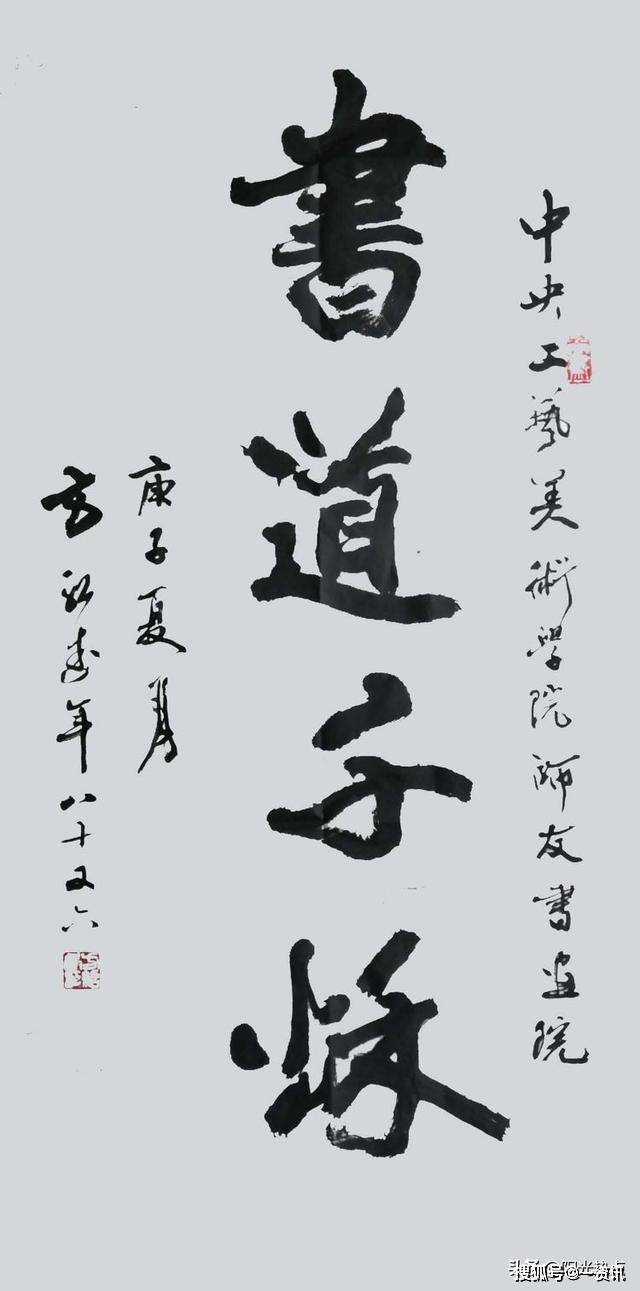 中央工藝美術學院師友書画院
書道千秋
庚子夏月
年八十又六
搜狐号@一资讯